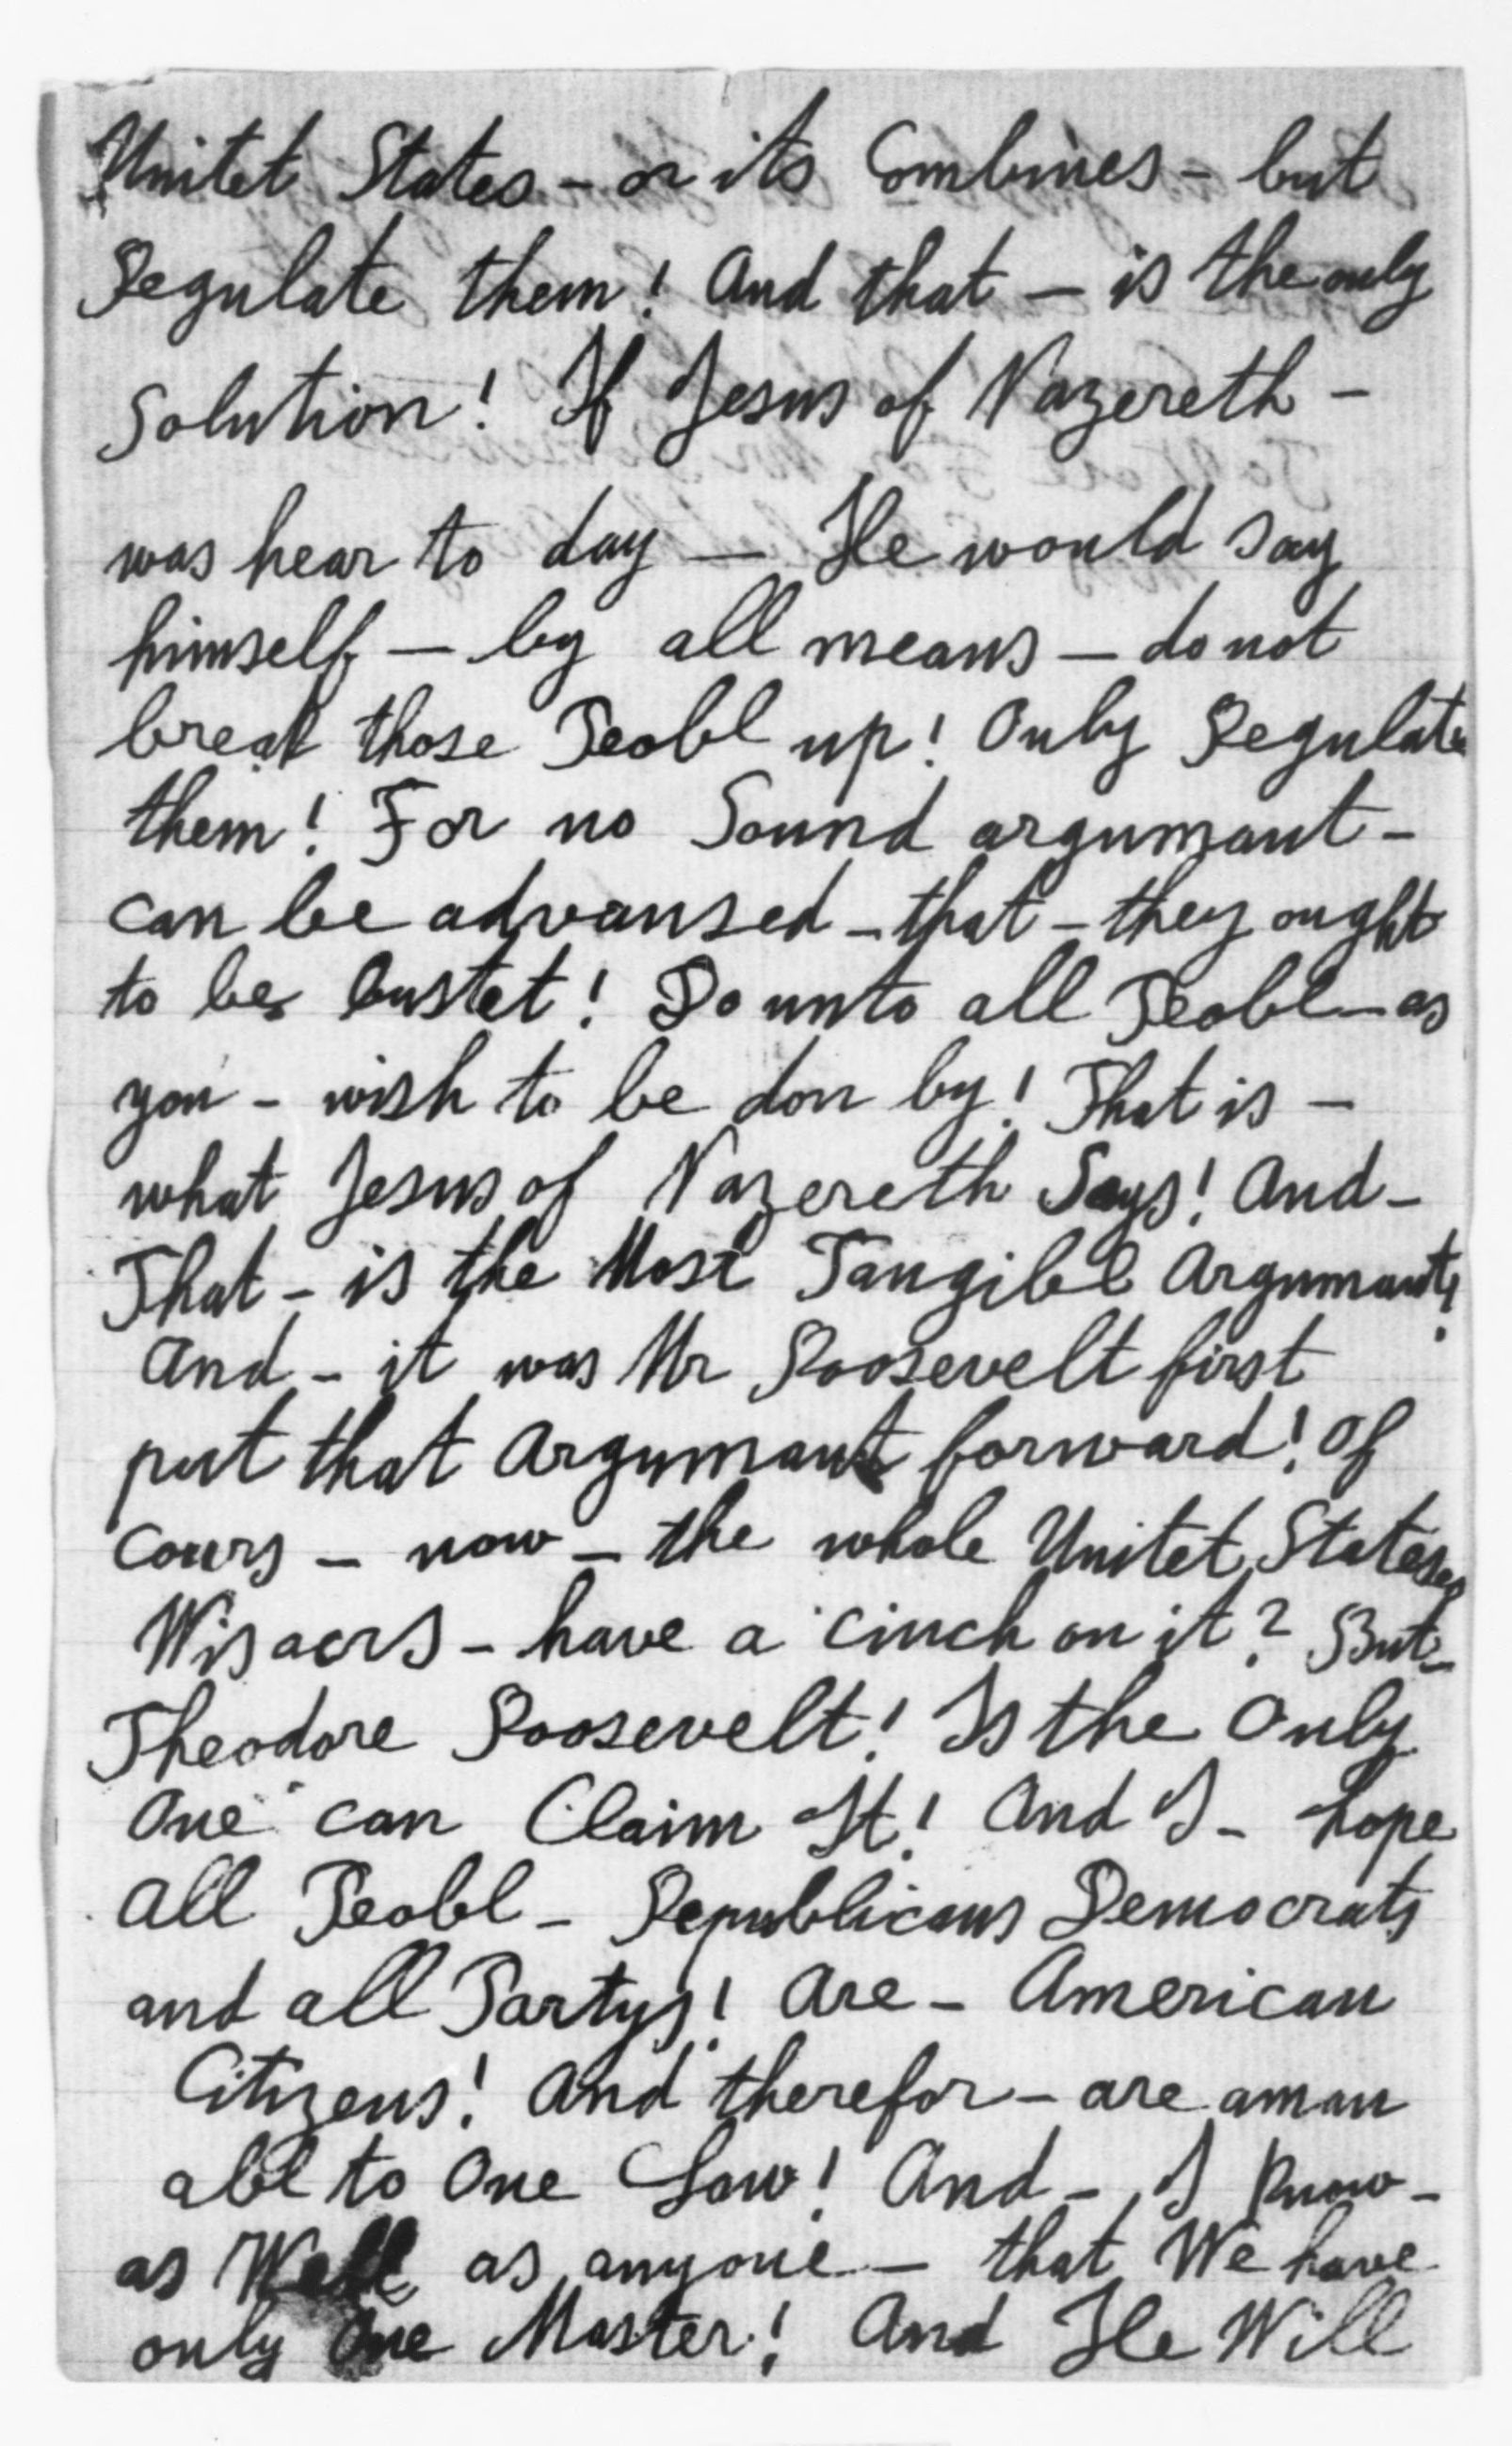 Unitet States - or its Combines - but
Regulate them! And that - is the only
Solution! If Jesus of Nazereth -
was hear to day - He would say
himself - by all means - do not
break those Peobl up! Only Regulate
them! For no Sound argumant -
can be advansed - that - they ought
to be bustet! Do unto all Peobl - as
you - wish to be don by! That is -
what Jesus of Nazereth Says! And -
That - is the Most Tangibl Argumant!
And - it was Mr Roosevelt first
put that Argumant forward! Of
Cours - now - the whole Unitet Stateses
Wisacrs - have a cinch on it? But -
Theodore Roosevelt! Is the Only
One can Claim It! And I - hope
all Peobl - Republicans Democrats
and all Partys! Are - American
Citizens! And therefor - are aman
abl to One Law! And - I know -
as Well as anyone - that We have
only One Master! And He Will